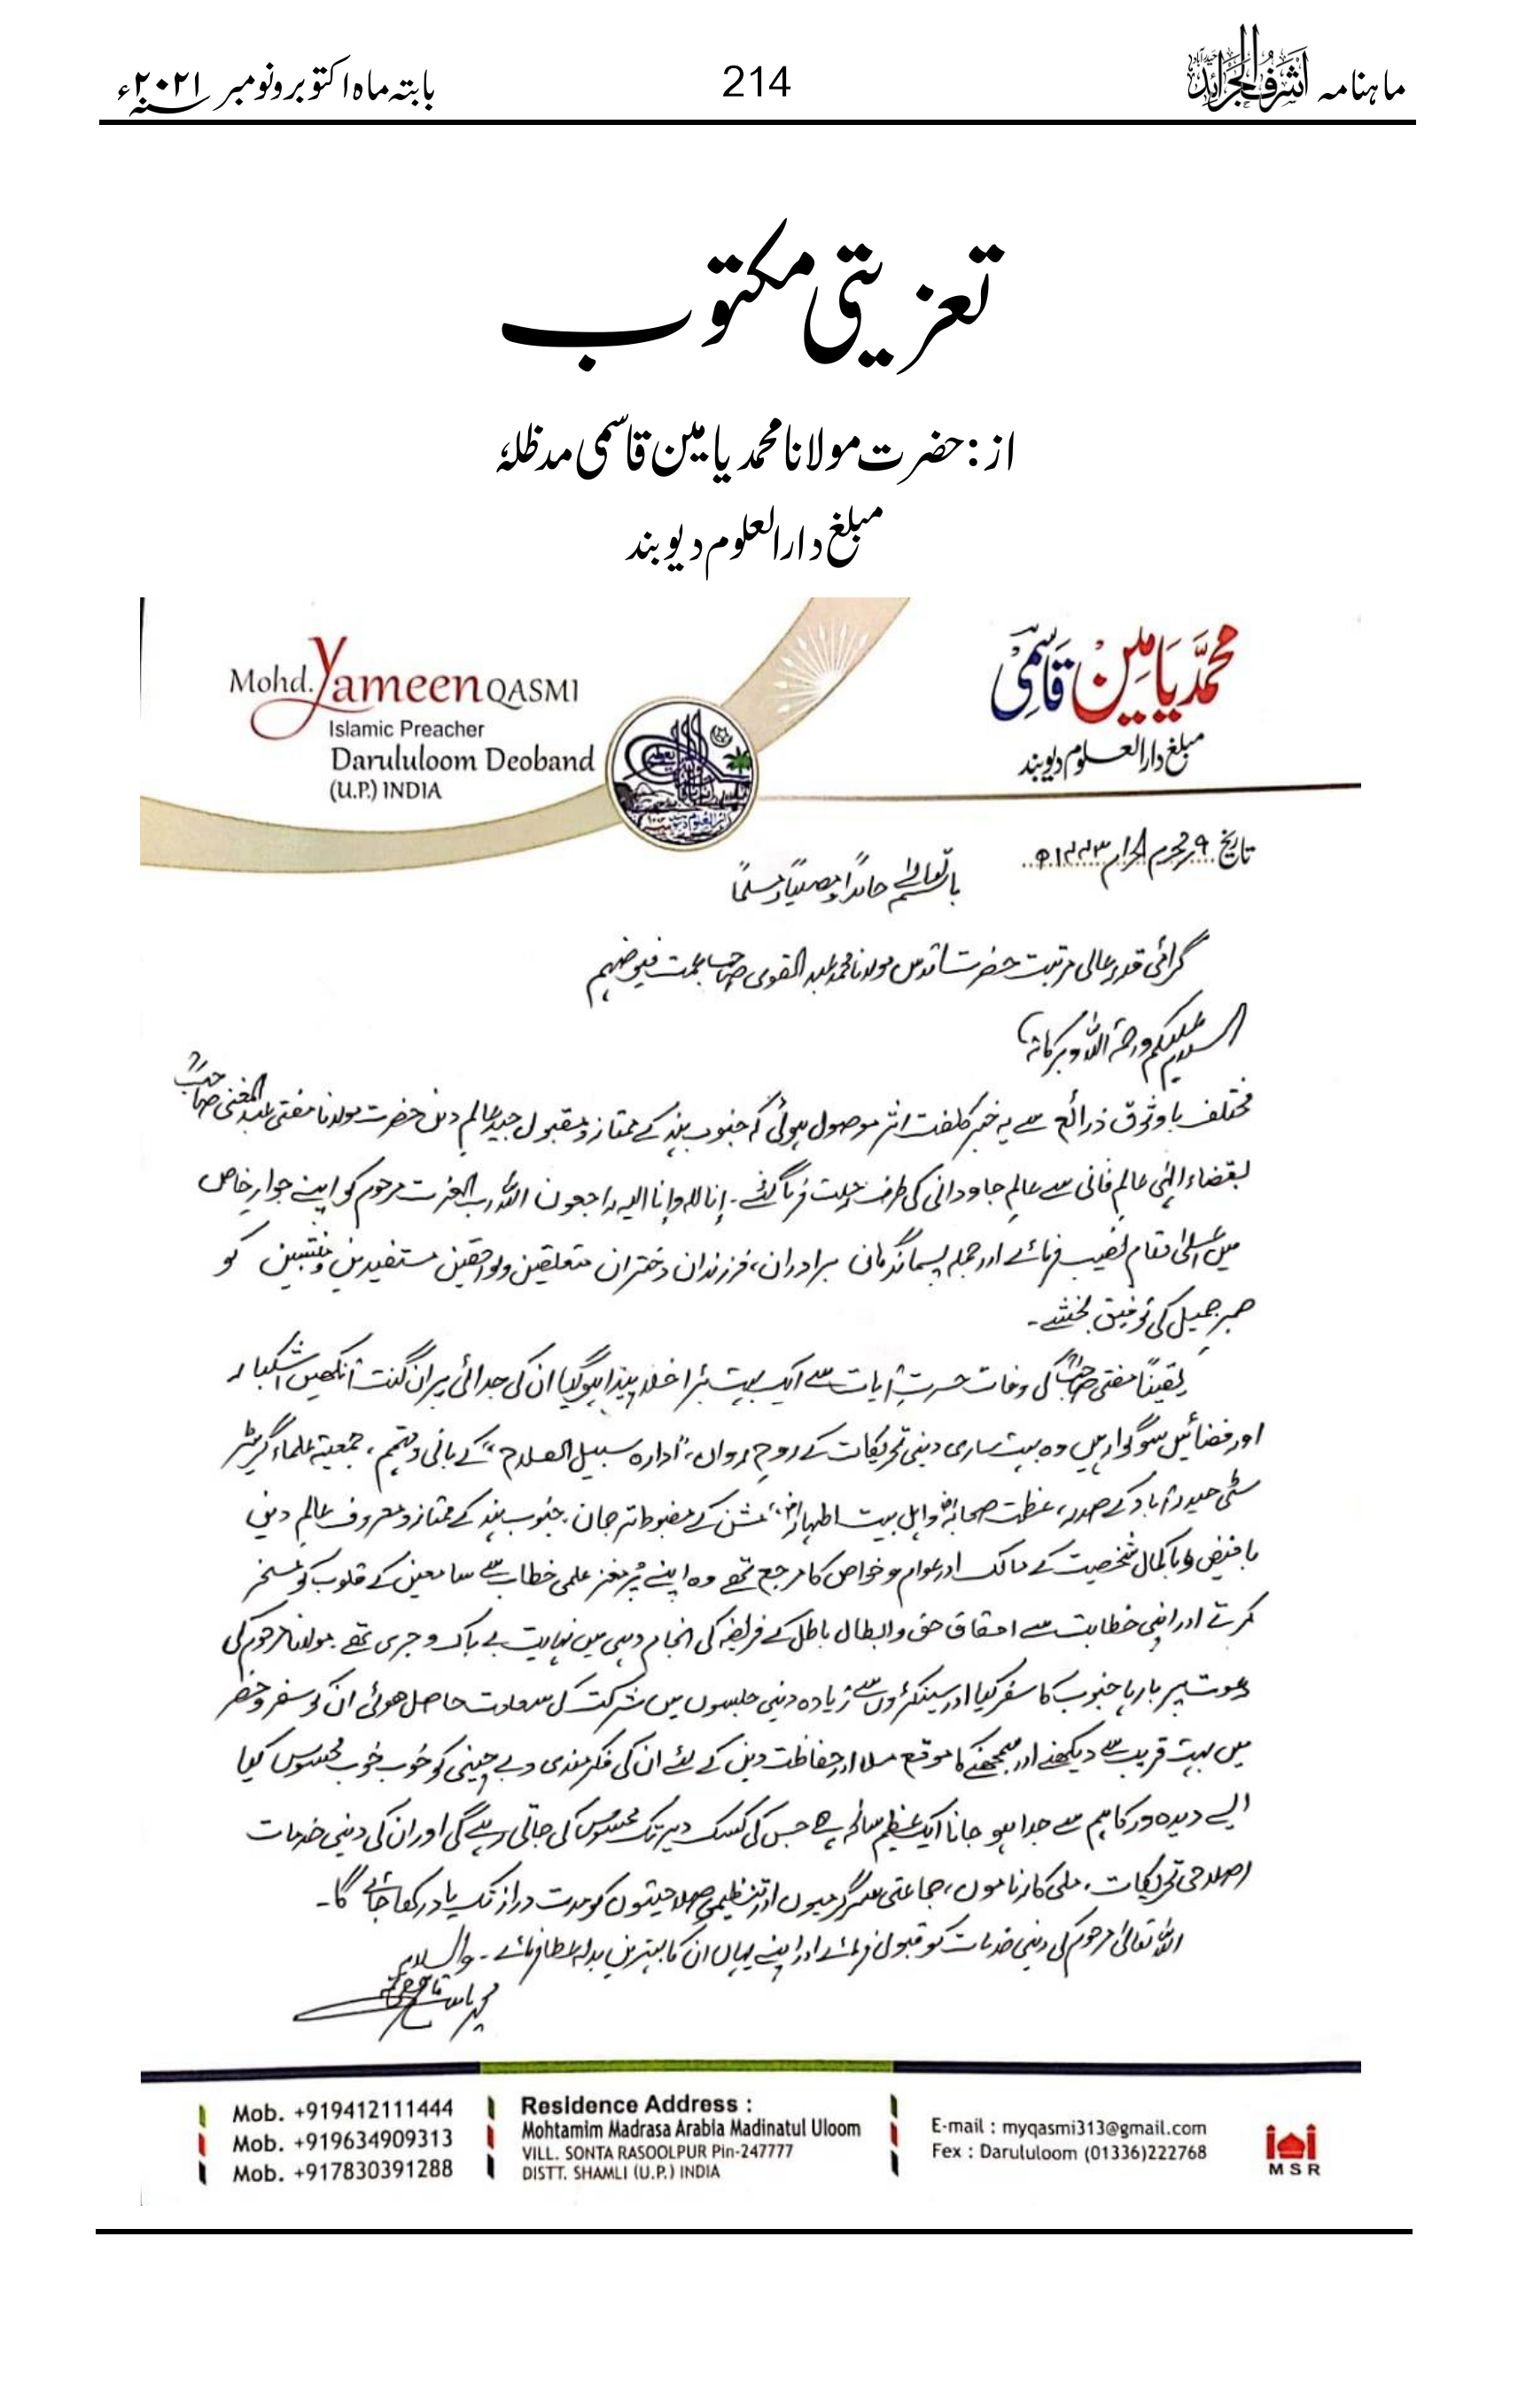 ماہنامہ اشرف الجرائد
214
بابتہ ماہ اکتوبر ونومبر ۲۰۲۱ء
تعزیتی مکتوب
از: حضرت مولانا محمد یامین قاسمی مدظلہٗ
مبلغ دارالعلوم دیوبند
Mohd. Yameen QASMI
Islamic Preacher
Darululoom Deoband
(U.P.) INDIA
محمد یامین قاسمی
مبلغ دارالعلوم دیوبند
تاریخ ۹ محرم الحرام ۱۴۴۳ھ
باسمہ تعالیٰ حامداً ومصلیاً ومسلماً
گرامی قدر عالی مرتبت حضرت اقدس مولانا محمد عبد القوی صاحب عمت فیوضہم
السلام علیکم ورحمۃ اللہ وبرکاتہ
مختلف باوثوق ذرائع سے یہ خبر کلفت اثر موصول ہوئی کہ جنوب ہند کے ممتاز ومقبول جید عالم دین حضرت مولانا مفتی عبد المغنی صاحبؒ
بقضاء الٰہی عالم فانی سے عالم جاودانی کی طرف رحلت فرما گئے۔ إنا للہ وإنا الیہ راجعون اللہ رب العزت مرحوم کو اپنے جوار خاص
میں اعلیٰ مقام نصیب فرمائے اور جملہ پسماندگان برادران، فرزندان دختران متعلقین ولواحقین مستفیدین ومنتسبین کو
صبر جمیل کی توفیق بخشے۔
یقیناً مفتی صاحبؒ کی وفات حسرت آیات سے ایک بہت بڑا خلا پیدا ہوگیا ان کی جدائی پر ان گنت آنکھیں اشکبار
اور فضائیں سوگوار ہیں وہ بہت ساری دینی تحریکات کے روح رواں، "ادارہ سبیل الفلاح" کے بانی ومہتمم، جمعیۃ علماء گریٹر
سٹی حیدرآباد کے صدر، عظمت صحابہؓ واہل بیت اطہارؓ مشن کے مضبوط ترجمان، جنوب ہند کے ممتاز ومعروف عالم دین
بافیض وباکمال شخصیت کے مالک اور عوام وخواص کا مرجع تھے وہ اپنے پُر مغز علمی خطاب سے سامعین کے قلوب کو مسخر
کرتے اور اپنی خطابت سے احقاق حق وابطال باطل کے فریضہ کی انجام دہی میں نہایت بے باک وجری تھے۔ مولانا مرحوم کی
دعوت پر بارہا جنوب کا سفر کیا اور سینکڑوں سے زیادہ دینی جلسوں میں شرکت کی سعادت حاصل ہوئی ان کو سفر وحضر
میں بہت قریب سے دیکھنے اور سمجھنے کا موقع ملا اور حفاظت دین کے لئے ان کی فکر مندی وبے چینی کو خوب خوب محسوس کیا
ایسے دیدہ ور کا ہم سے جدا ہو جانا ایک عظیم سانحہ ہے جس کی کسک دیر تک محسوس کی جاتی رہے گی اور ان کی دینی خدمات
اصلاحی تحریکات، ملی کارناموں، جماعتی سرگرمیوں اور تنظیمی صلاحیتوں کو مدت دراز تک یاد رکھا جائے گا۔
اللہ تعالیٰ مرحوم کی دینی خدمات کو قبول فرمائے اور اپنے یہاں ان کا بہترین بدلہ عطا فرمائے۔ والسلام
محمد یامین قاسمی
Mob. +919412111444
Mob. +919634909313
Mob. +917830391288
Residence Address :
Mohtamim Madrasa Arabia Madinatul Uloom
VILL. SONTA RASOOLPUR Pin-247777
DISTT. SHAMLI (U.P.) INDIA
E-mail : myqasmi313@gmail.com
Fex : Darululoom (01336)222768
MSR